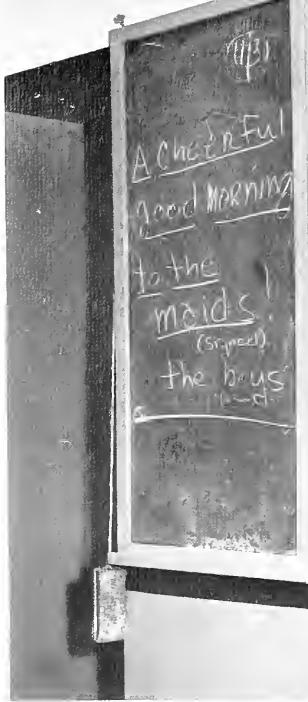 A Cheerful
good Morning
to the
maids!
(signed)
the boys